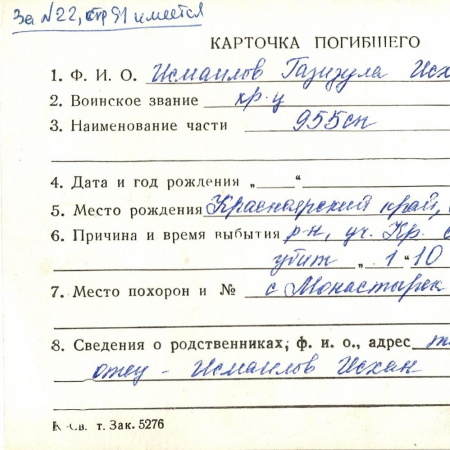 За N22, стр 91 имеется
КАРТОЧКА ПОГИБШЕГО
1. Ф. И. О. Исмаилов Газизула Исх
2. Воинское звание кр-ц
3. Наименование части 955сп
4. Дата и год рождения „ “
5. Место рождения Красноярский край,
6. Причина и время выбытия р-н, уч. Кр.
убит „1“10
7. Место похорон и № с Монастырек
8. Сведения о родственниках, ф. и. о., адрес
отец - Исмаилов Исхан
т. Зак. 5276